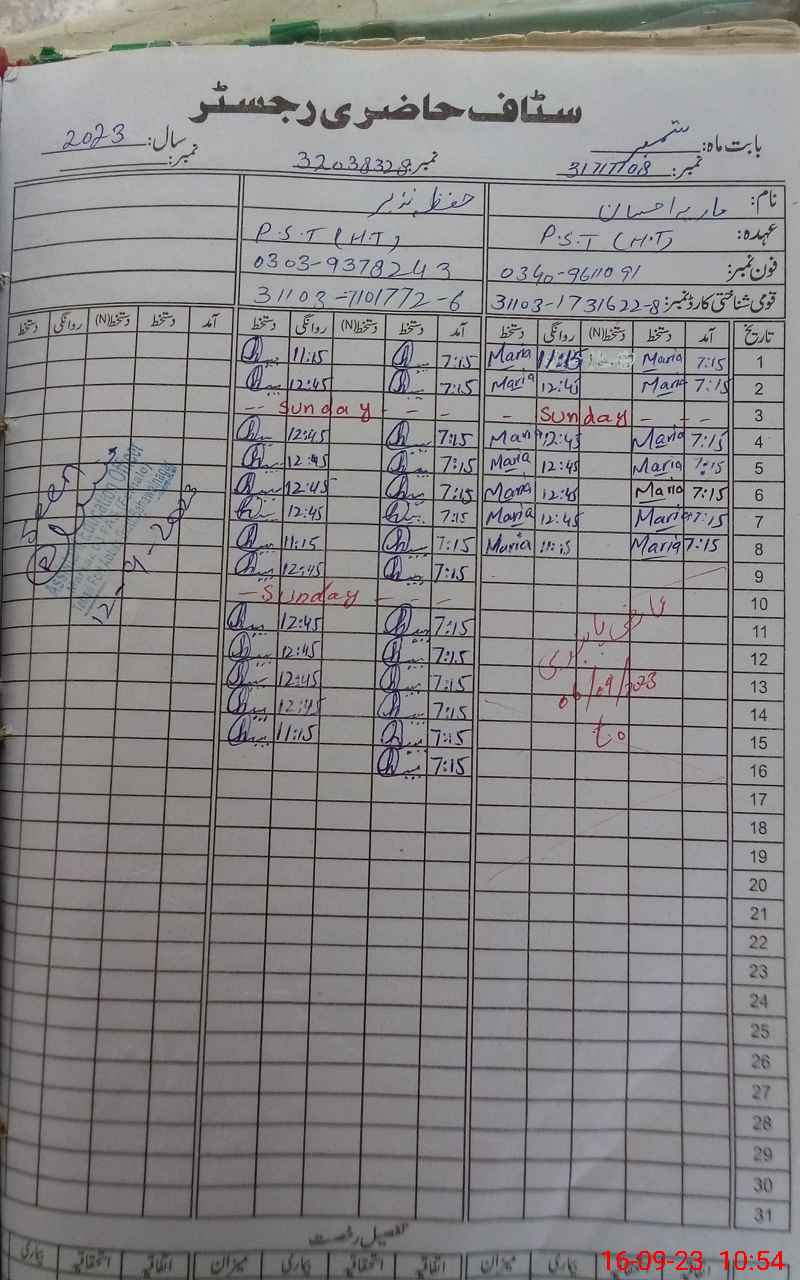 سٹاف حاضری رجسٹر
بابت ماہ: ستمبر سال: 2023
نمبر: 31717708 نمبر: 32038328 نمبر:
نام: ماریہ احسان حفظہ نذیر
عہدہ: P.S.T (H.T) P.S.T (H.T)
فون نمبر: 0340-9611091 0303-9378243
قومی شناختی کارڈ نمبر: 31103-1731622-8 31103-7101772-6
تاریخ آمد دستخط دستخط(N) روانگی دستخط آمد دستخط دستخط(N) روانگی دستخط آمد دستخط دستخط(N) روانگی دستخط
1 7:15 Maria 11:15 Maria 7:15 11:15
2 7:15 Maria 12:45 Maria 7:15 12:45
3 - Sunday - - - -- Sunday - - -
4 7:15 Maria 12:45 Maria 7:15 12:45
5 7:15 Maria 12:45 Maria 7:15 12:45
6 7:15 Maria 12:45 Maria 7:15 12:45
7 7:15 Maria 12:45 Maria 7:15 12:45
8 7:15 Maria 11:15 Maria 7:15 11:15
9 7:15 12:45
10 - Sunday - - -
11 7:15 12:45
12 7:15 12:45
13 06/09/2023 7:15 12:45
14 7:15 12:45
15 7:15 11:15
16 7:15
17
18
19
20
21
22
23
24
25
26
27
28
29
30
31
Seen
Education Officer
12-9-2023
تفصیل رخصت
اتفاقیہ استحقاقیہ بیماری میزان اتفاقیہ استحقاقیہ بیماری میزان اتفاقیہ استحقاقیہ بیماری
16-09-23 10:54